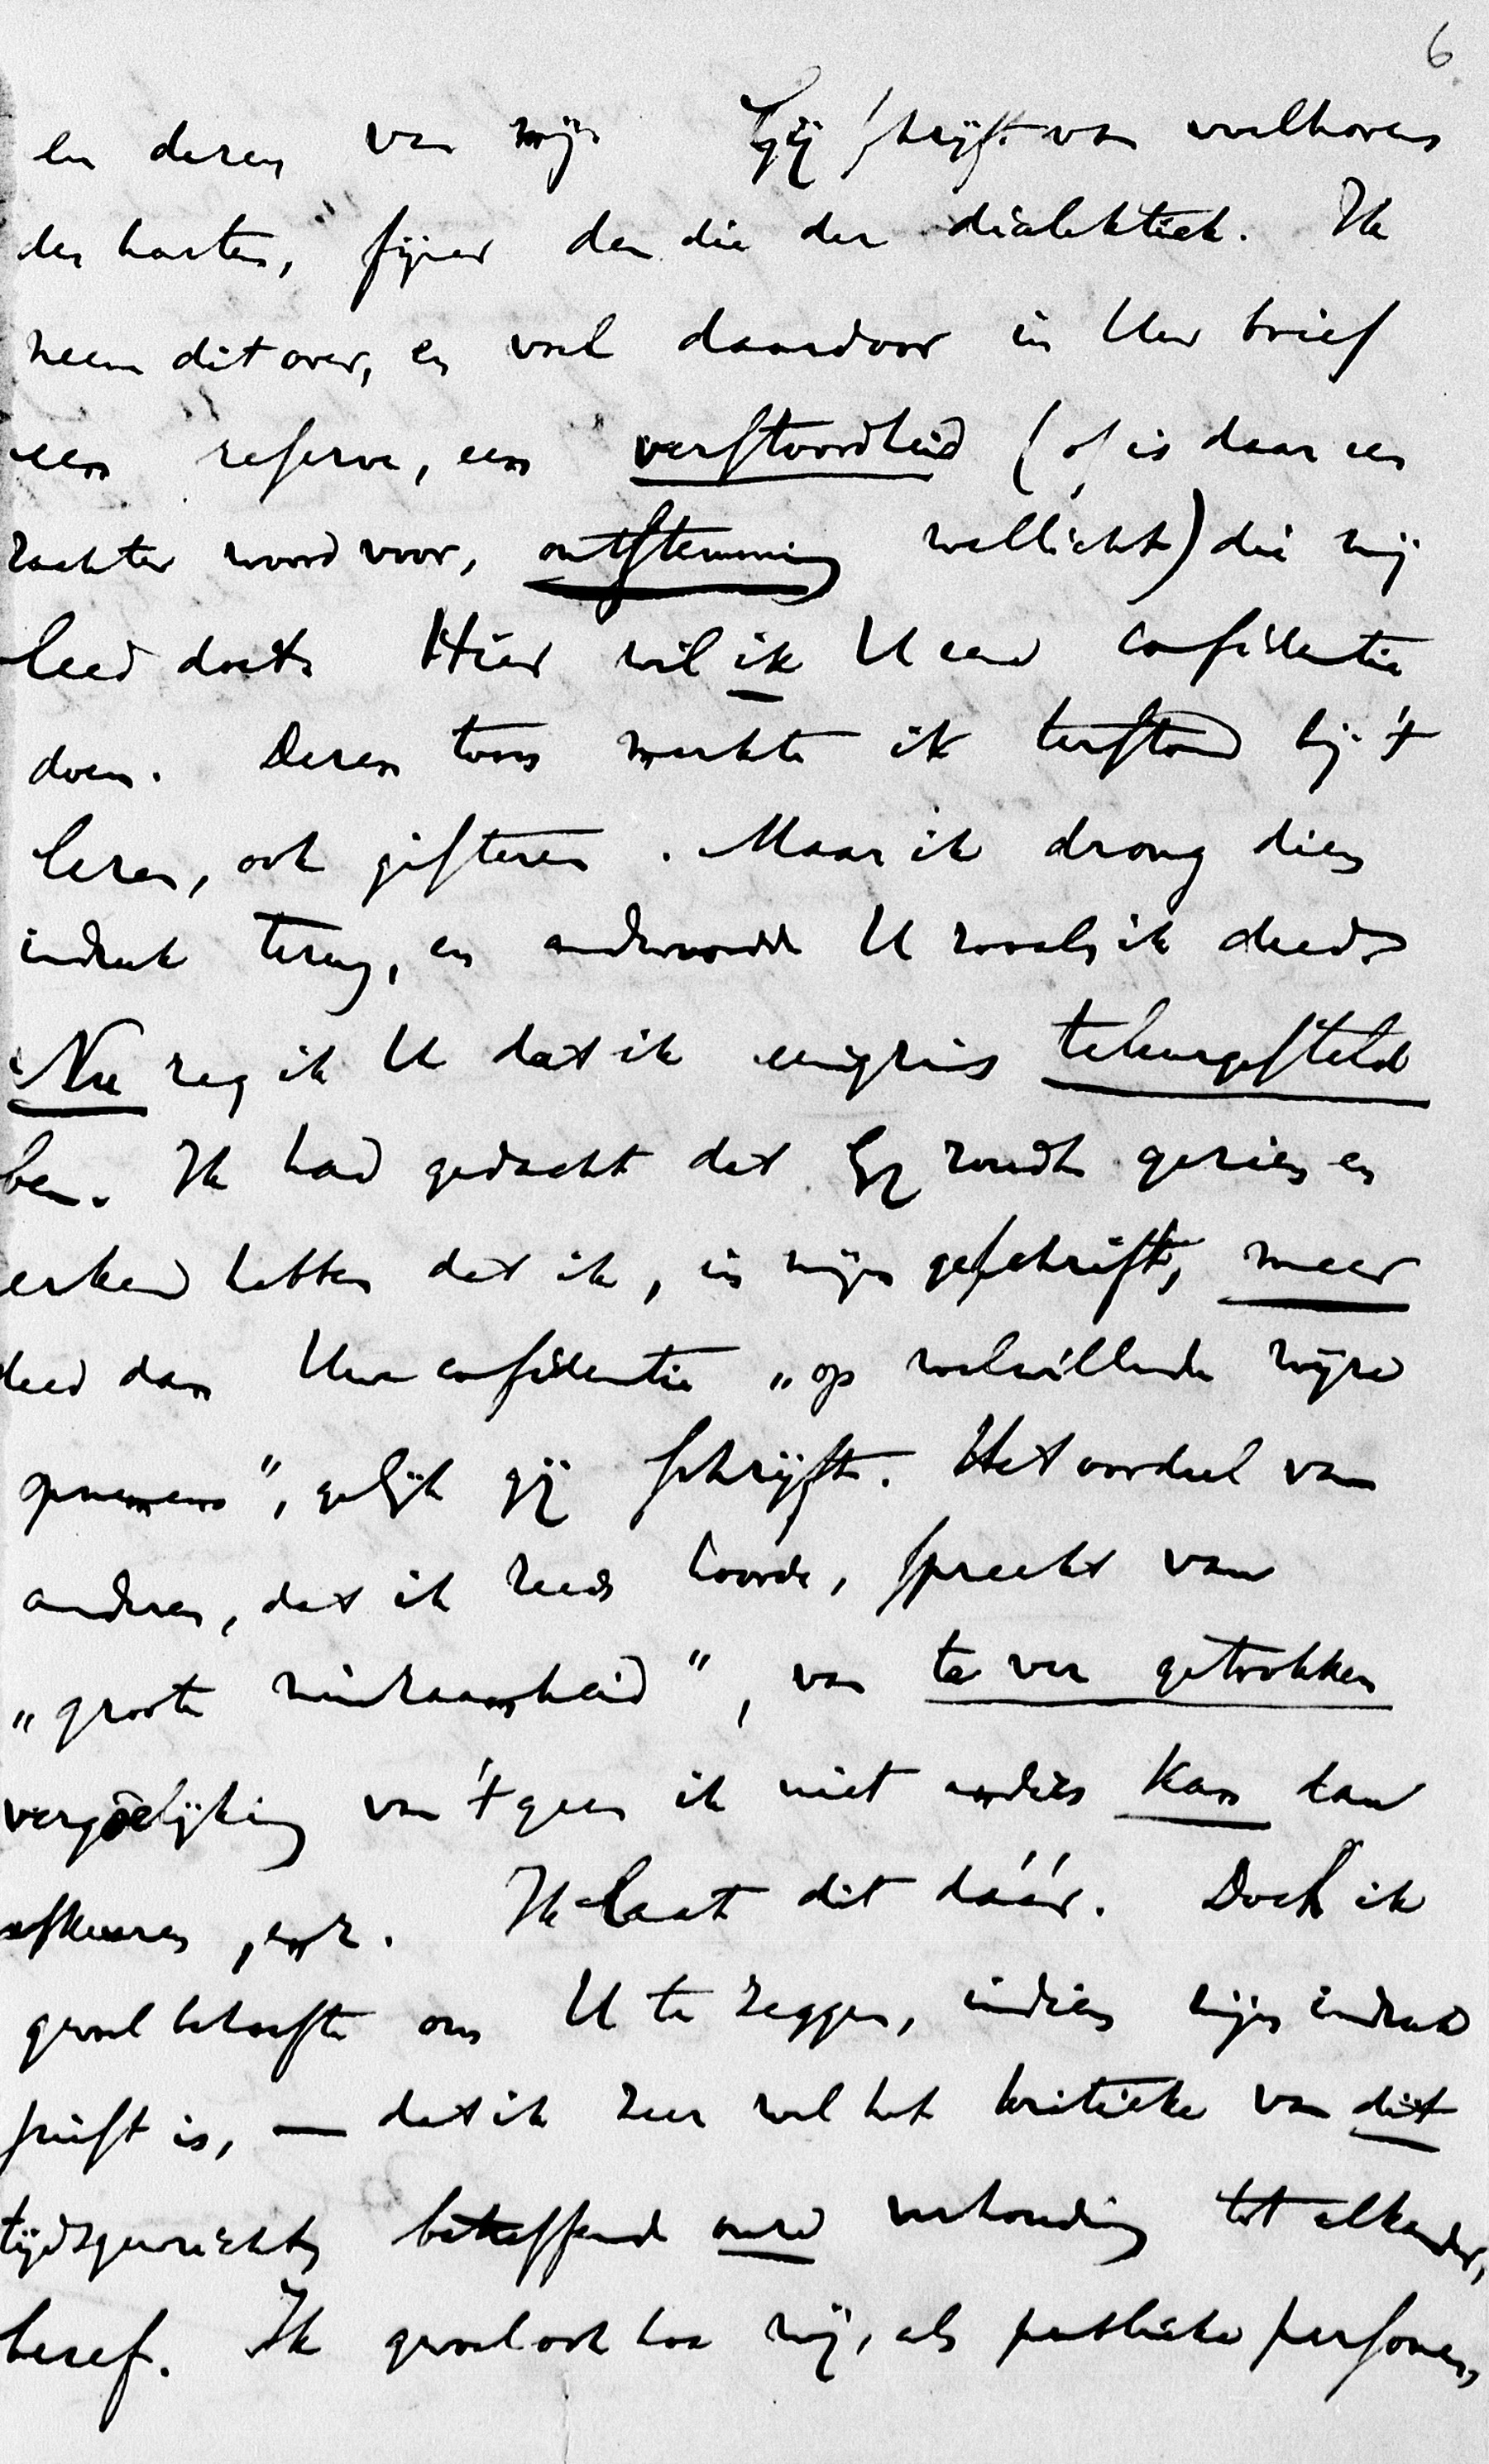 6
en dezen van mijn Gij schrijft van voelhorens
des harten, fijner dan die der dialektiek. Ik
neem dit over, en voel daardoor in Uw brief
een reserve, een verstoordheid (of is daar een
zachter woord voor, ontstemming wellicht) die mij
leed doet. Hier wil ik U een confidentie
doen. Dezen toon merkte ik terstond bij 't
lezen, ook gisteren. Maar ik drong dien
indruk terug, en andwoordde U zooals ik deed.
Nu zeg ik U dat ik eenigzins teleurgesteld
ben. Ik had gedacht dat Gij zoudt gezien en
erkend hebben dat ik, in mijn geschrift, meer
deed dan Uwe confidentie „op welwillende wijze
opnemen”, gelijk gij schrijft. Het oordeel van
anderen, dat ik reeds hoorde, spreekt van
„groote minzaamheid”, van te ver getrokken
vergoelijking van 't geen ik niet anders kan dan
afkeuren, enz. Ik laat dit dáár. Doch ik
gevoel behoefte om U te zeggen, indien mijn indruk
juist is, — dat ik zeer wel het kritieke van dit
tijdsgewricht, betreffend onze verhouding tot elkander,
besef. Ik gevoel ook hoe wij, als publieke personen,